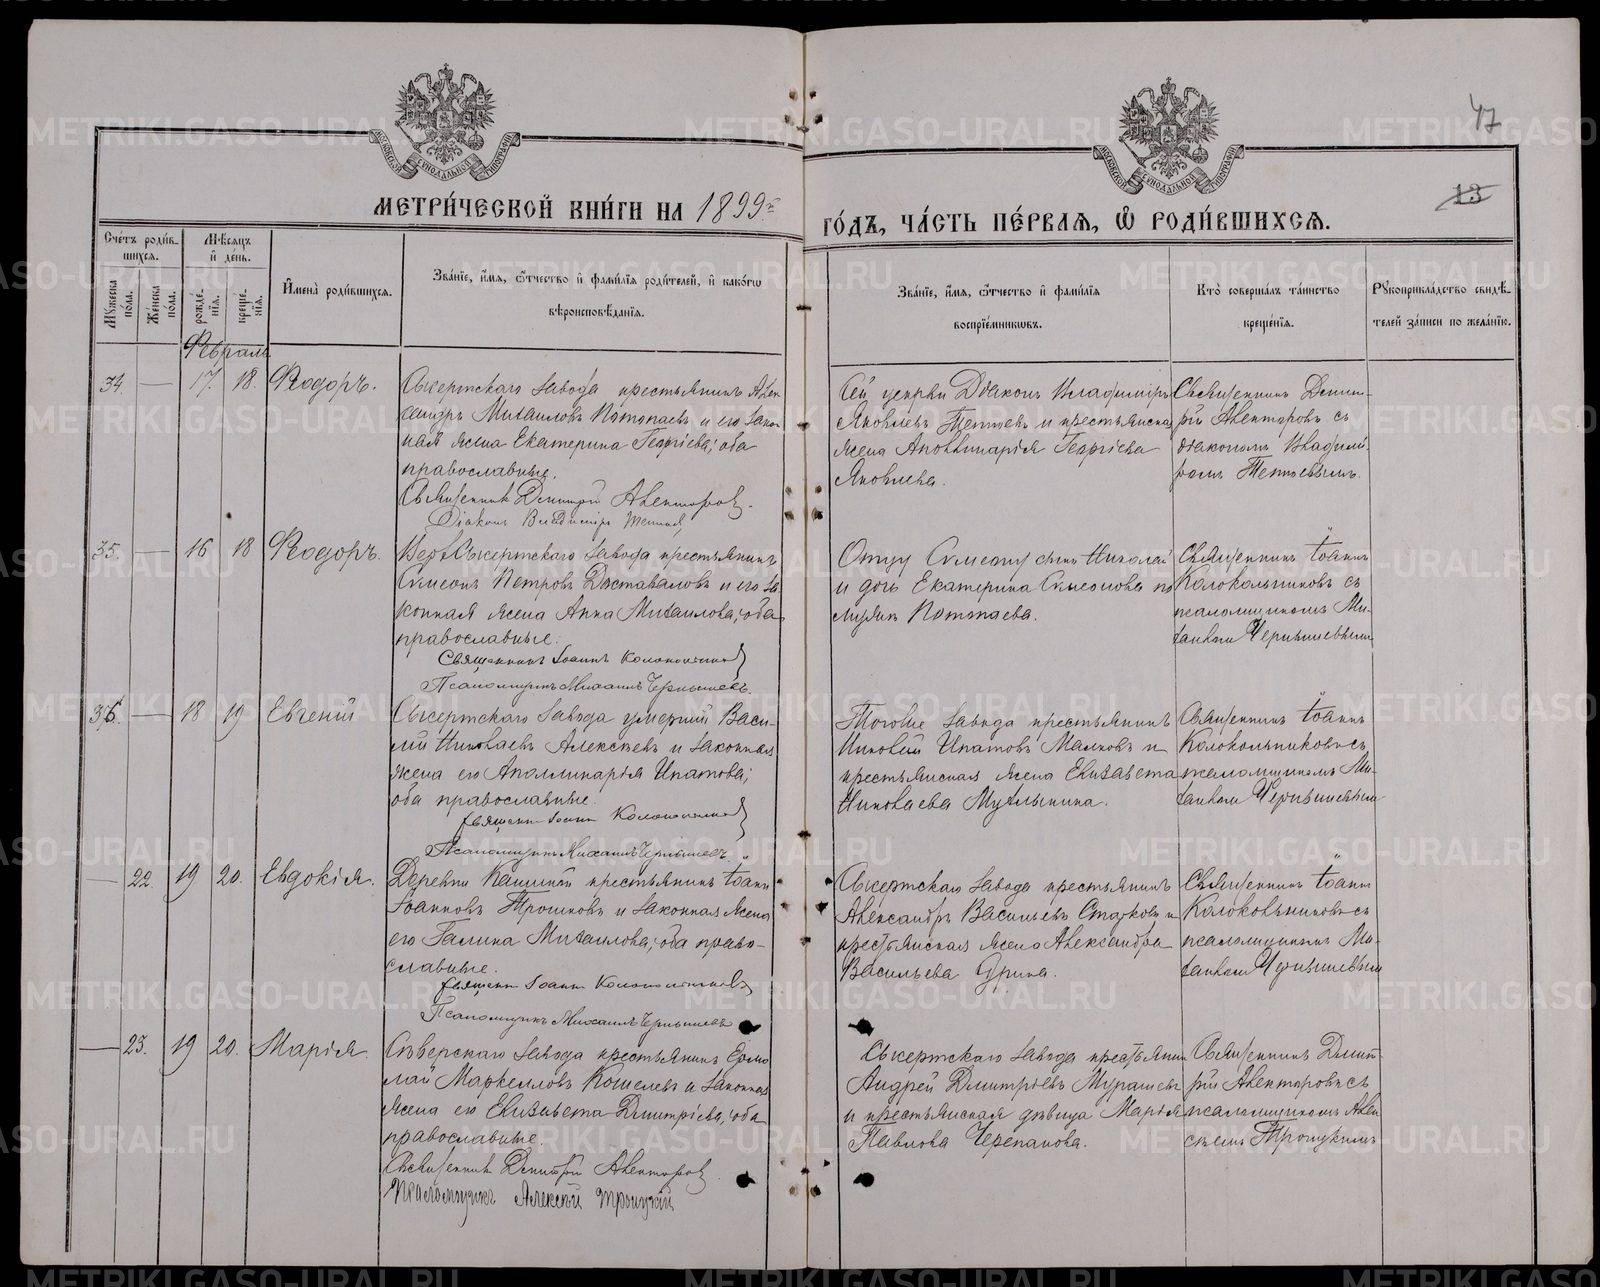 47
13
МЕТРИ́ЧЕСКОЙ КНИ́ГИ НА 1899й
ГО́ДЪ, ЧА́СТЬ ПЕ́РВАЯ, Ѽ РОДИ́ВШИХСЯ.
Сче́тъ роди́в-
шихся.
Мѣ́сяцъ
и҆ де́нь.
Мꙋ́жеска по́ла.
Же́нска по́ла.
рожде́-
нїя.
креще́-
нїя.
И҆мена̀ роди́вшихся.
Зва́нїе, и҆́мя, ѻ҆́тчество и҆ фами́лїя роди́телей, и҆ како́гѡ
вѣроисповѣ́данїя.
Зва́нїе, и҆́мя, ѻ҆́тчество и҆ фами́лїя
воспрїе́мникѡвъ.
Кто̀ соверша́лъ та́инство
креще́нїя.
Рꙋкоприкла́дство свидѣ́-
телей за́писи по жела́нїю.
Февраль
34. — 17. 18. Ѳеодоръ.
Сысертскаго завода крестьянинъ Алек-
сандръ Михаиловъ Потопаевъ и его закон-
ная жена Екатерина Георгіева; оба
православные.
Священникъ Димитрій Алекторовъ.
Діаконъ Владиміръ Тетюевъ
Сей церкви Діаконъ Владиміръ
Яковлевъ Тетюевъ и крестьянска
жена Аполлинарія Георгіева
Яковлева.
Священникъ Дими-
трій Алекторовъ съ
діакономъ Владими-
ромъ Тетюевымъ.
35. — 16 18 Ѳеодоръ.
Верхъ-Сысертскаго завода крестьянинъ
Симеонъ Петровъ Доставаловъ и его за-
конная жена Анна Михаилова; оба
православные.
Священникъ Іоаннъ Колокольниковъ
Псаломщикъ Михаилъ Чернышевъ.
Отцу Симеону сынъ Николай
и дочь Екатерина Симеонова по
мужѣ Потопаева.
Священникъ Іоаннъ
Колокольниковъ съ
псаломщикомъ Ми-
хаиломъ Чернышевымъ
36. — 18 19 Евгеній
Сысертскаго завода умершій Васи-
лій Николаевъ Алексѣевъ и законная
жена его Аполлинарія Ипатова;
оба православные.
Священникъ Іоаннъ Колокольниковъ
Псаломщикъ Михаилъ Чернышевъ.
завода крестьянинъ
Ипатовъ Малковъ и
крестьянская жена Елизавета
Николаева
Священникъ Іоаннъ
Колокольниковъ съ
псаломщикомъ Ми-
хаиломъ Чернышевымъ
— 22. 19 20. Евдокія.
Деревни Кашиной крестьянинъ Іоаннъ
Іоанновъ Трошковъ и законная жена
его Галина Михаилова; оба право-
славные.
Священникъ Іоаннъ Колокольниковъ
Псаломщикъ Михаилъ Чернышевъ
Сысертскаго завода крестьянинъ
Александръ Васильевъ Старковъ и
крестьянская жена Александра
Васильева
Священникъ Іоаннъ
Колокольниковъ съ
псаломщикомъ Ми-
хаиломъ Чернышевымъ
— 23. 19 20. Марія.
Сѣверскаго завода крестьянинъ Ермо-
лай Маркелловъ Кошелевъ и законная
жена его Елизавета Димитріева, оба
православные.
Священникъ Димитрій Алекторовъ.
Псаломщикъ Алексѣй Троицкій
Сысертскаго завода крестьянинъ
Андрей Димитріевъ Мурашевъ
и крестьянская дѣвица Марія
Павлова Черепанова.
Священникъ Димит-
рій Алекторовъ съ
псаломщикомъ Алек-
сѣемъ Троицкимъ